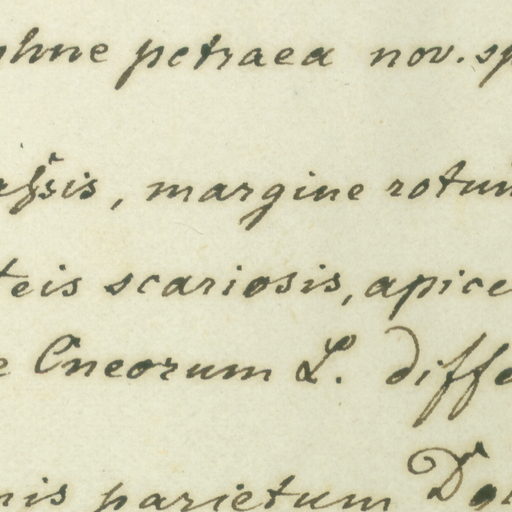 phne petraea nov. sp
assis, margine rotun
teis scariosis, apice
e Cneorum L. diffe
nis parietum Do